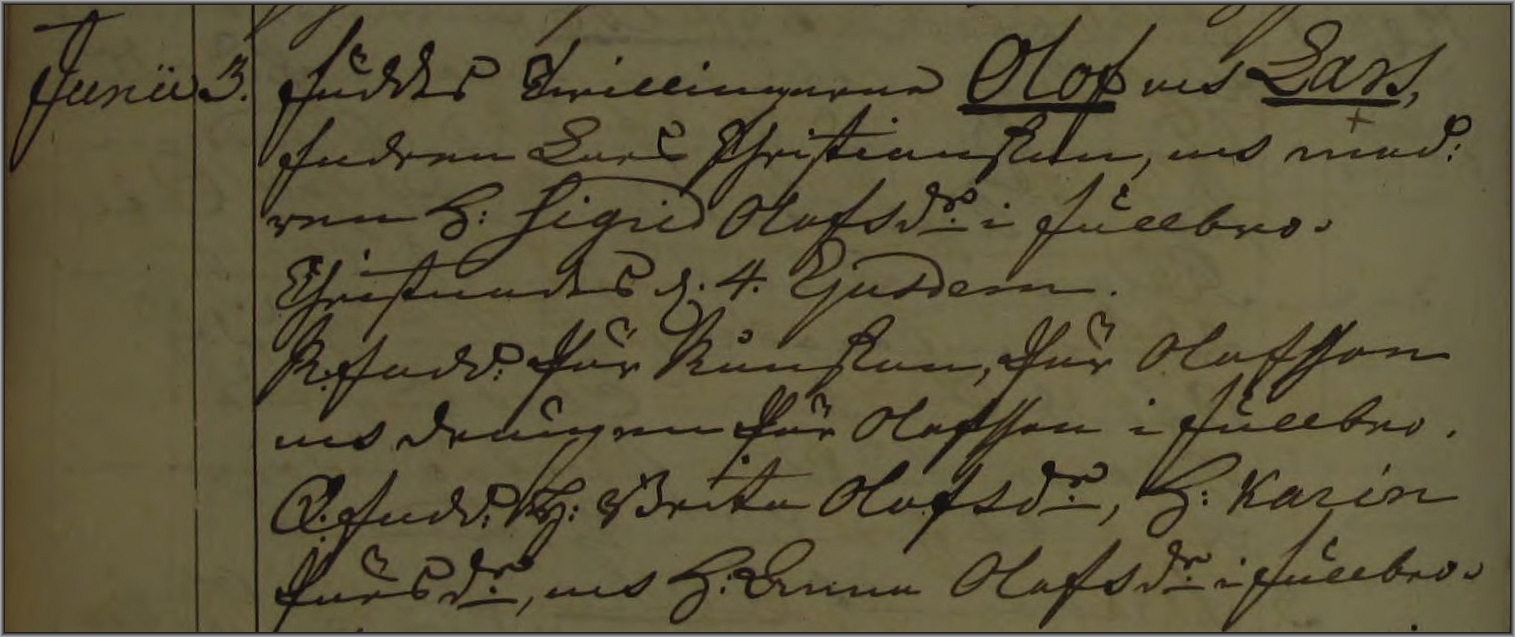 Junii 3. föddes Twillingarne Olof och Lars,
fadren Lars Christiansson, och mod:
ren H: Sigrid Olofsdr i Fullbro.
Christnades d. 4. Ejusdem.
M.fadd: Pär Månsson, Pär Olofsson
och drängen Pär Olofsson i Fullbro.
Q.fadd: H: Brita Olofsdr, H: Karin
Pärsdr, och H: Anna Olofsdr i Fullbro.